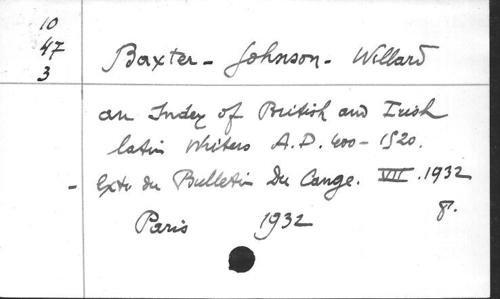 10
47
3
Baxter - Johnson - Willard
an Index of British and Irish
latin Writers A.D. 400-1520.
- Extr du Bulletin Du Cange. VII. 1932
Paris 1932 8°.